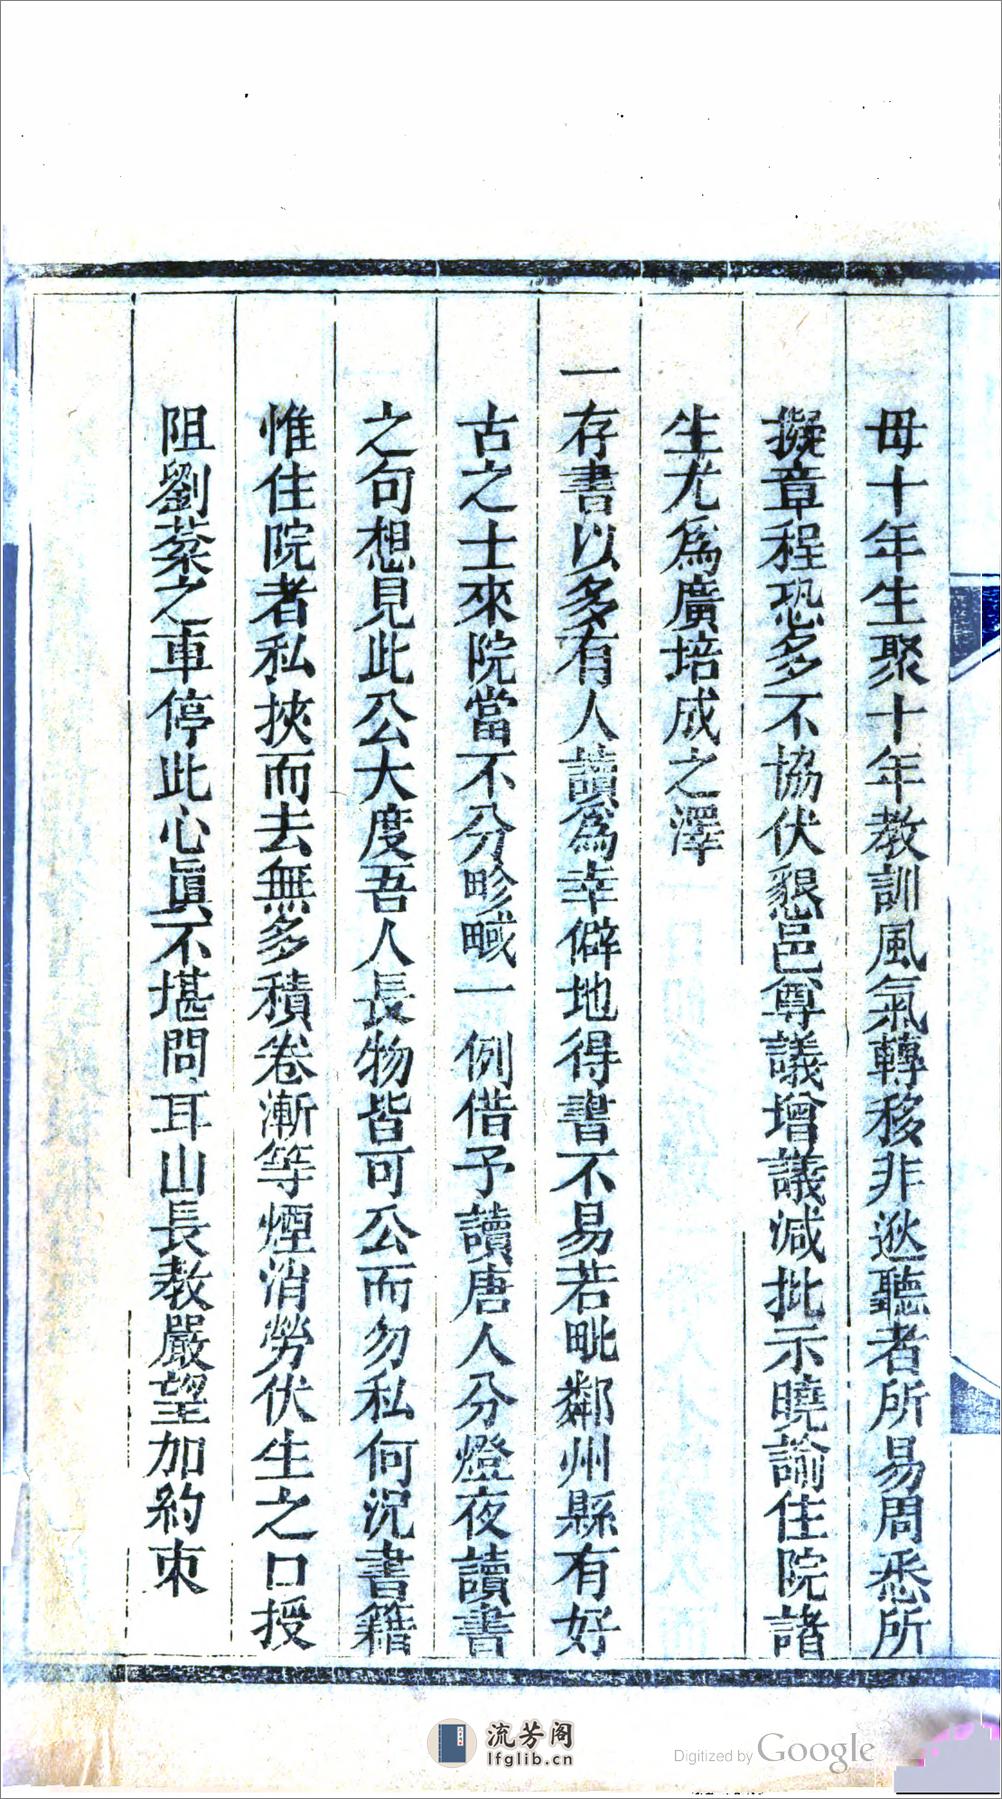 毋十年生聚十年教訓風氣轉移非逖聽者所易周悉所
擬章程恐多不協伏懇邑尊議增議減批示曉諭住院諸
生尤爲廣培成之澤
一存書以多有人讀爲幸僻地得書不易若毗鄰州縣有好
古之士來院當不分畛域一例借予讀唐人分燈夜讀書
之句想見此公大度吾人長物皆可公而勿私何況書籍
惟住院者私挾而去無多積卷漸等煙消勞伏生之口授
阻劉蓁之車停此心眞不堪問耳山長教嚴望加約束
流芳阁
lfglib.cn
Digitized by Google